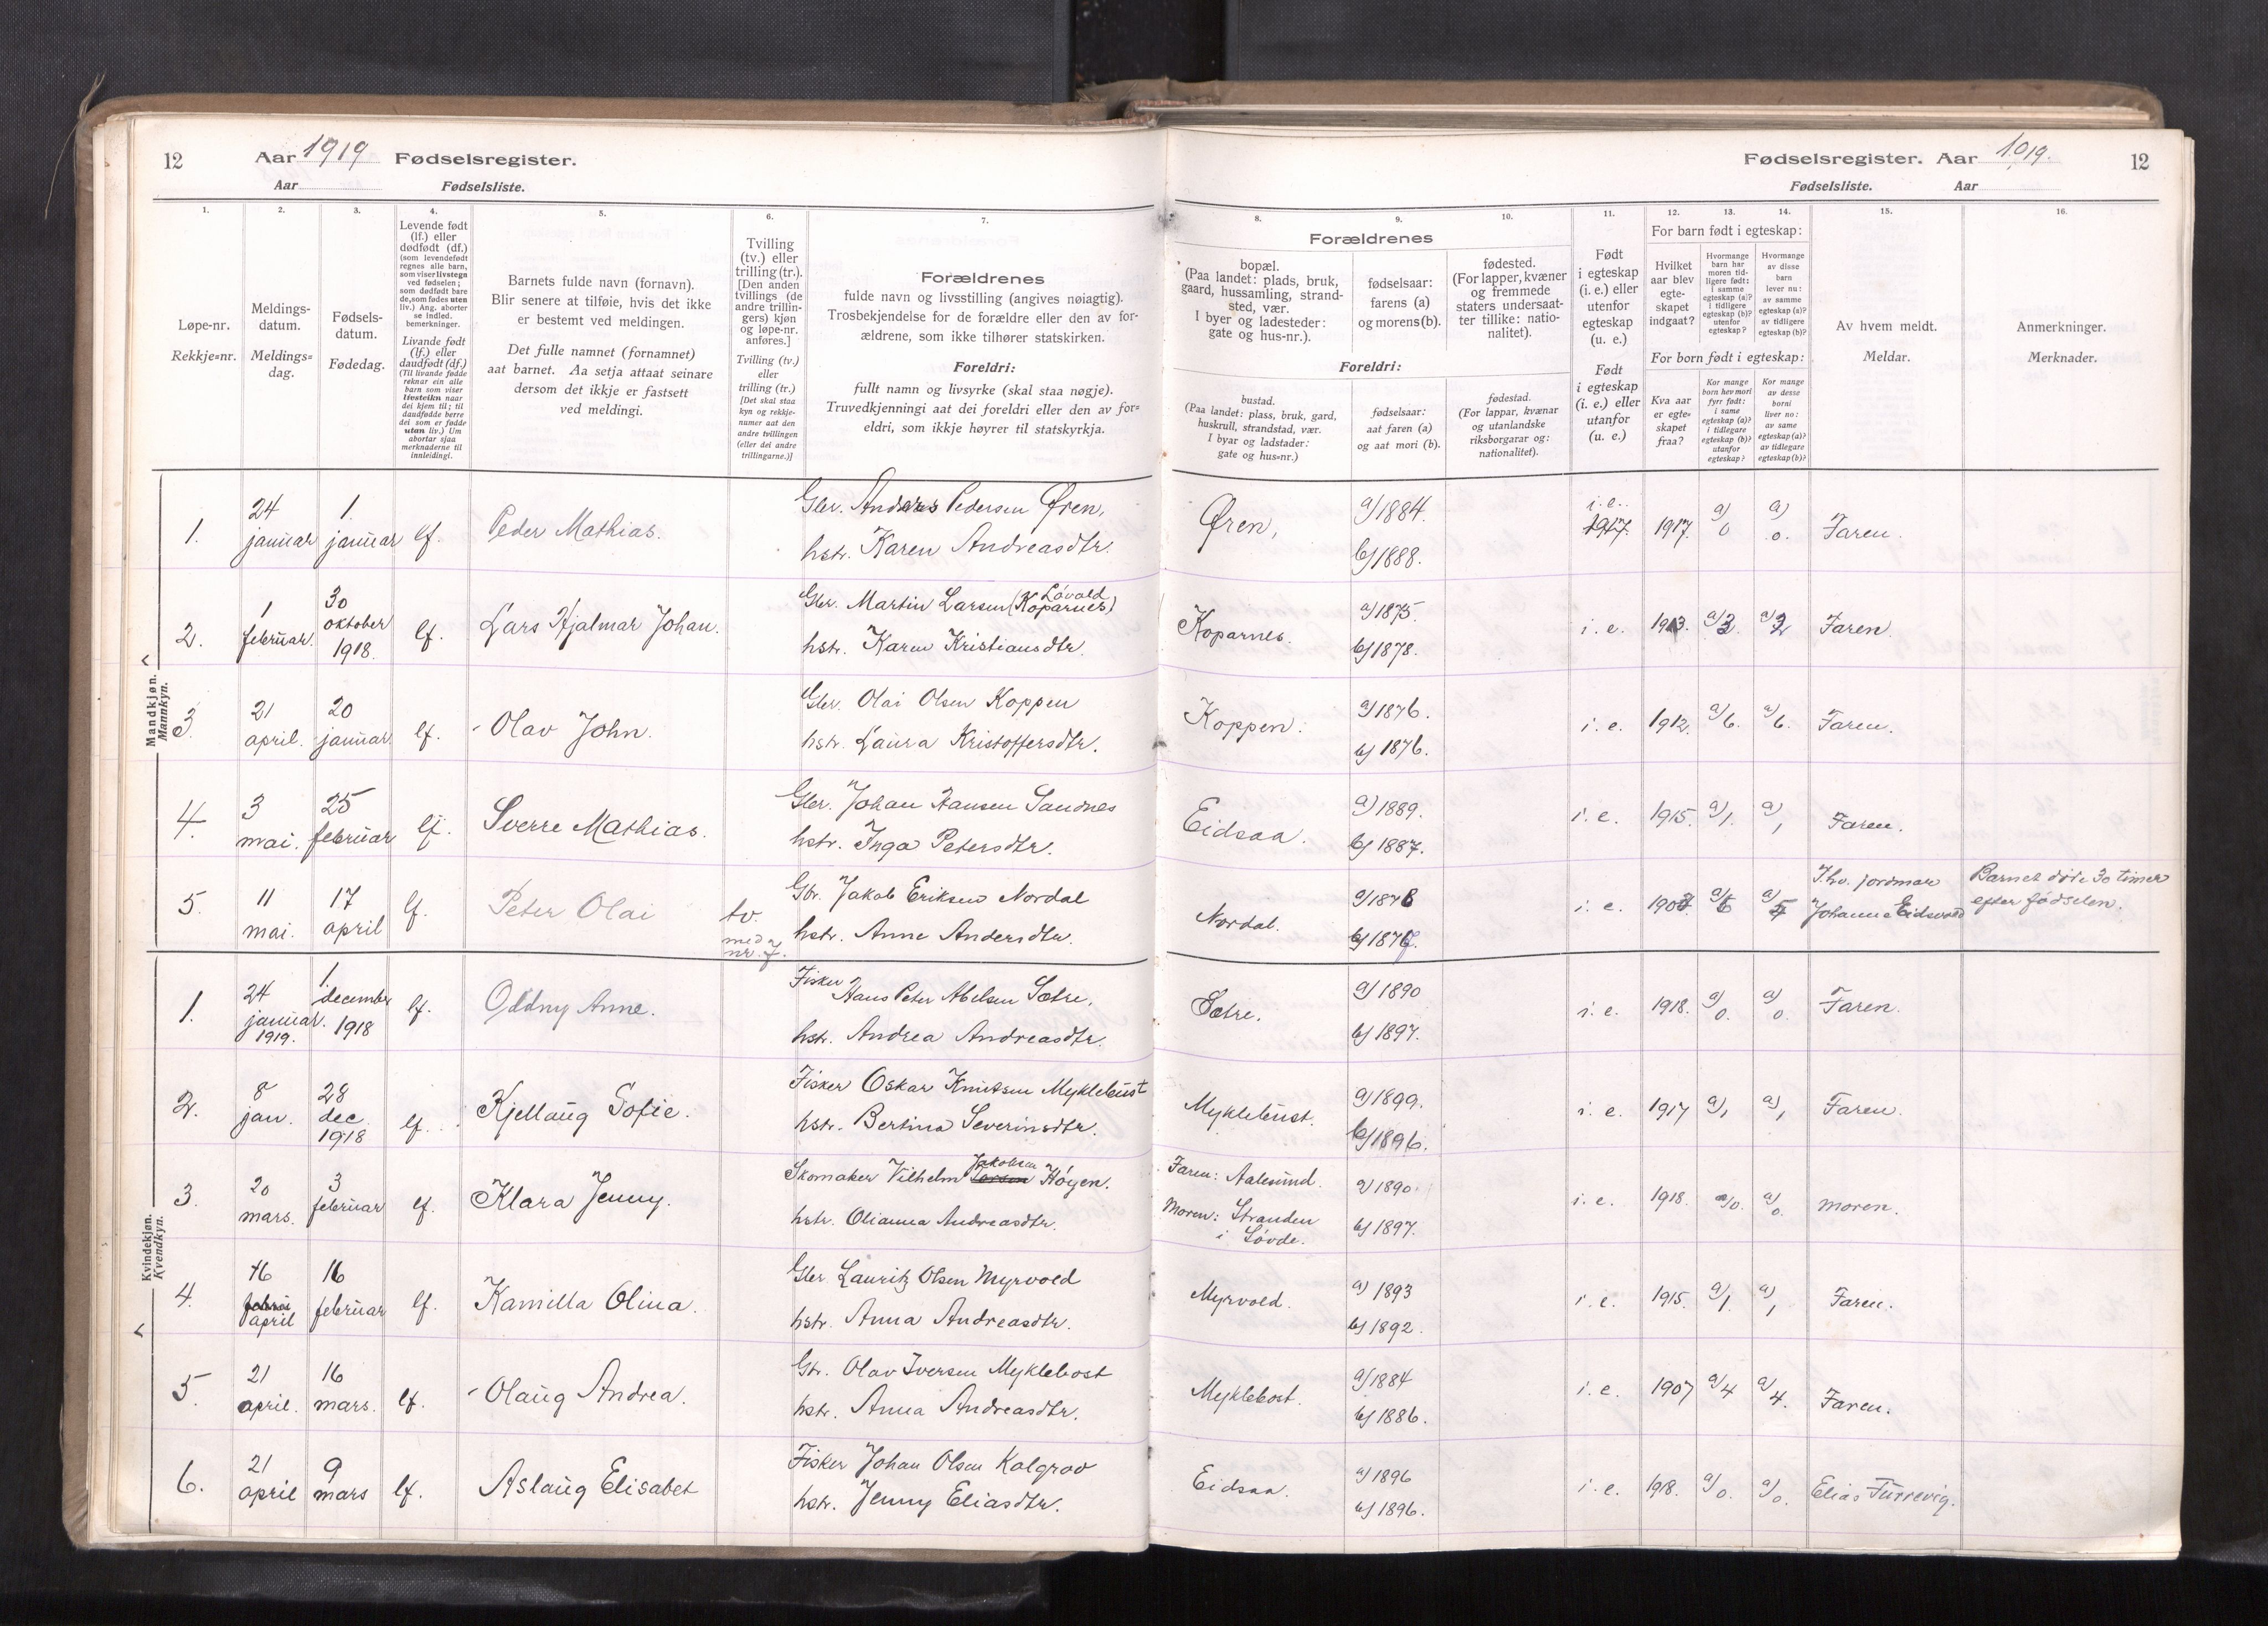 12 Aar 1919 Fødselsregister.
Aar Fødselsliste.
Fødselsregister. Aar 1919. 12
Fødselsliste. Aar
1.
Løpe-nr.
Rekkje=nr.
2.
Meldings-
datum.
Meldings=
dag.
3.
Fødsels-
datum.
Fødedag.
4.
Levende født
(lf.) eller
dødfødt (df.)
(som levendefødt
regnes alle barn,
som viser livstegn
ved fødselen;
som dødfødt bare
de, som fødes uten
liv.) Ang. aborter
se indled.
bemerkninger.
Livande født
(lf.) eller
daudfødt (df.)
(Til livande fødde
reknar ein alle
barn som viser
livsteikn naar
dei kjem til; til
daudfødde berre
dei som er fødde
utan liv.) Um
abortar sjaa
merknaderne til
innleidingi.
5.
Barnets fulde navn (fornavn).
Blir senere at tilføie, hvis det ikke
er bestemt ved meldingen.
Det fulle namnet (fornamnet)
aat barnet. Aa setja attaat seinare
dersom det ikkje er fastsett
ved meldingi.
6.
Tvilling
(tv.) eller
trilling (tr.).
[Den anden
tvillings (de
andre trillin-
gers) kjøn
og løpe-nr.
anføres.]
Tvilling (tv.)
eller
trilling (tr.)
[Det skal staa
kyn og rekkje-
numer aat den
andre tvillingen
(eller dei andre
trillingarne.)]
7.
Forældrenes
fulde navn og livsstilling (angives nøiagtig).
Trosbekjendelse for de forældre eller den av for-
ældrene, som ikke tilhører statskirken.
Foreldri:
fullt namn og livsyrke (skal staa nøgje).
Truvedkjenningi aat dei foreldri eller den av for=
eldri, som ikkje høyrer til statskyrkja.
Forældrenes
8.
bopæl.
(Paa landet: plads, bruk,
gaard, hussamling, strand-
sted, vær.
I byer og ladesteder:
gate og hus-nr.).
9.
fødselsaar:
farens (a)
og morens (b).
10.
fødested.
(For lapper, kvæner
og fremmede
staters undersaat-
ter tillike: natio-
nalitet).
Foreldri:
bustad.
(Paa landet: plass, bruk, gard,
huskrull, strandstad, vær.
I byar og ladstader:
gate og hus=nr.)
fødselsaar:
aat faren (a)
og aat mori (b).
fødestad.
(For lappar, kvænar
og utanlandske
riksborgarar og:
nationalitet).
11.
Født
i egteskap
(i. e.) eller
utenfor
egteskap
(u. e.)
Født
i egteskap
(i. e.) eller
utanfor
(u. e.)
12. 13. 14.
For barn født i egteskap:
Hvilket
aar blev
egte-
skapet
indgaat?
Hvormange
barn har
moren tid-
ligere født:
i samme
egteskap (a)?
i tidligere
egteskap (b)?
utenfor
egteskap?
Hvormange
av disse
barn
lever nu:
av samme
egteskap (a)?
av tidligere
egteskap (b)?
For born født i egteskap:
Kva aar
er egte=
skapet
fraa?
Kor mange
born hev mori
fyrr født:
i same
egteskap (a)?
i tidlegare
egteskap (b)?
utanfor
egteskap?
Kor mange
av desse
borni
liver no:
av same
egteskap (a)?
av tidlegare
egteskap (b)?
15.
Av hvem meldt.
Meldar.
16.
Anmerkninger.
Merknader.
Mandkjøn.
Mannkyn.
1. 24 januar 1. januar lf. Peder Mathias.
Gbr. Anders Pedersen Øren,
hstr. Karen Andreasdtr.
Øren, a) 1884. b) 1888. i. e. 1917. 1917. a) 0 a) 0. Faren.
2. 1 februar. 30 oktober 1918. lf. Lars Hjalmar Johan.
Gbr. Martin Larsen (Koparnes) Løvold
hstr. Karen Kristiansdtr.
Koparnes. a) 1875. b) 1878. i. e. 1913. a) 3. a) Faren.
3. 21 april. 20 januar. lf. Olav John.
Gbr. Olai Olsen Koppen
hstr. Laura Kristoffersdtr.
Koppen. a) 1876. b) 1876. i. e. 1912. a) 6. a) 6. Faren.
4. 3 mai. 25 februar lf. Sverre Mathias.
Gbr. Johan Hansen Sandnes
hstr. Inga Petersdtr.
Eidsaa. a) 1889. b) 1887. i. e. 1915. a) 1. a) 1 Faren.
5. 11 mai. 17 april lf. Peter Olai tv. med nr. 7.
Gbr. Jakob Eriksen Nordal
hstr. Anne Andersdtr.
Nordal. a) 1876 b) 1877. i. e. a) a) 5 J.hv. jordmor
Johanne Eidsvold
Barnet døde 30 timer
efter fødselen.
Kvindekjøn.
Kvendkyn.
1. 24 januar. 1919. 1. december 1918 lf. Oddny Anne.
Fisker Hans Peter Abelsen Sætre,
hstr. Andrea Andreasdtr.
Sætre. a) 1890 b) 1897. i. e. 1918. a) 0. a) 0. Faren.
2. 8 jan. 28 dec. 1918 lf. Kjellaug Sofie.
Fisker Oskar Knutsen Myklebust
hstr. Bertina Severinsdtr.
Myklebust. a) 1899. b) 1896. i. e. 1917 a) 1 a) 1 Faren.
3. 20 mars. 3 februar lf. Klara Jenny.
Skomaker Vilhelm Jakobsen Høyen.
hstr. Olianna Andreasdtr.
Faren: Aalesund.
Moren: Stranden
i Søvde.
a) 1890 b) 1897. i. e. 1918. a) 0. a) 0. moren.
4. 16 april 16 februar lf. Kamilla Olina.
Gbr. Lauritz Olsen Myrvold
hstr. Anna Andreasdtr.
Myrvold. a) 1893 b) 1892. i. e. 1915. a) 1. a) 1 Faren.
5. 21 april. 16 mars. lf. Olaug Andrea.
Gbr. Olav Iversen Myklebost
hstr. Anna Andreasdtr.
Myklebost. a) 1884 b) 1886. i. e. 1907 a) 4 a) 4. Faren.
6. 21 april 9 mars lf. Aslaug Elisabet
Fisker Johan Olsen Kalgrav
hstr. Jenny Eliasdtr.
Eidsaa. a) 1896 b) 1896. i. e. 1918. a) 0. a) 0. Elias Turrevig.